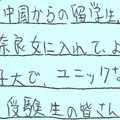 中国からの留学生は
奈良女に入れて、よ
子大で、ユニックな
受験生の皆さん